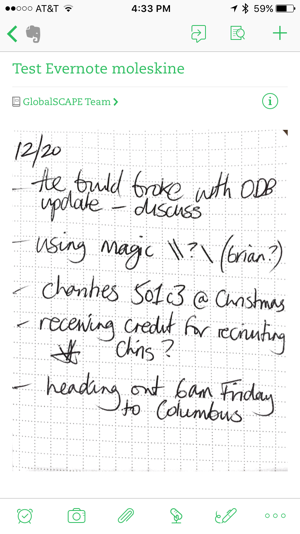 AT&T 4:33 PM 59%
Test Evernote moleskine
GlobalSCAPE Team >
12/20
- the build broke with ODB
update - discuss
- using magic \\?\ (brian?)
- charities 501c3 @ Christmas
- receiving credit for recruiting
Chris?
- heading out 6am Friday
to Columbus